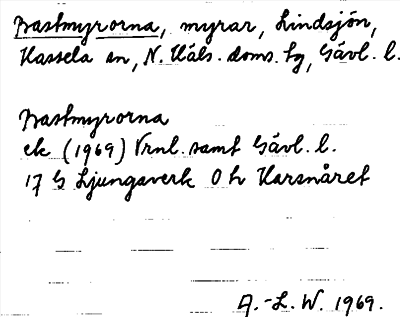 Bastmyrorna, myrar, Lindsjön,
Hassela sn, N. Häls. doms. tg, Gävl. l.
Bastmyrorna
ek (1969) Vrnl. samt Gävl. l.
17 G Ljungaverk 0 h Karsnåret
A.-L. W. 1969.